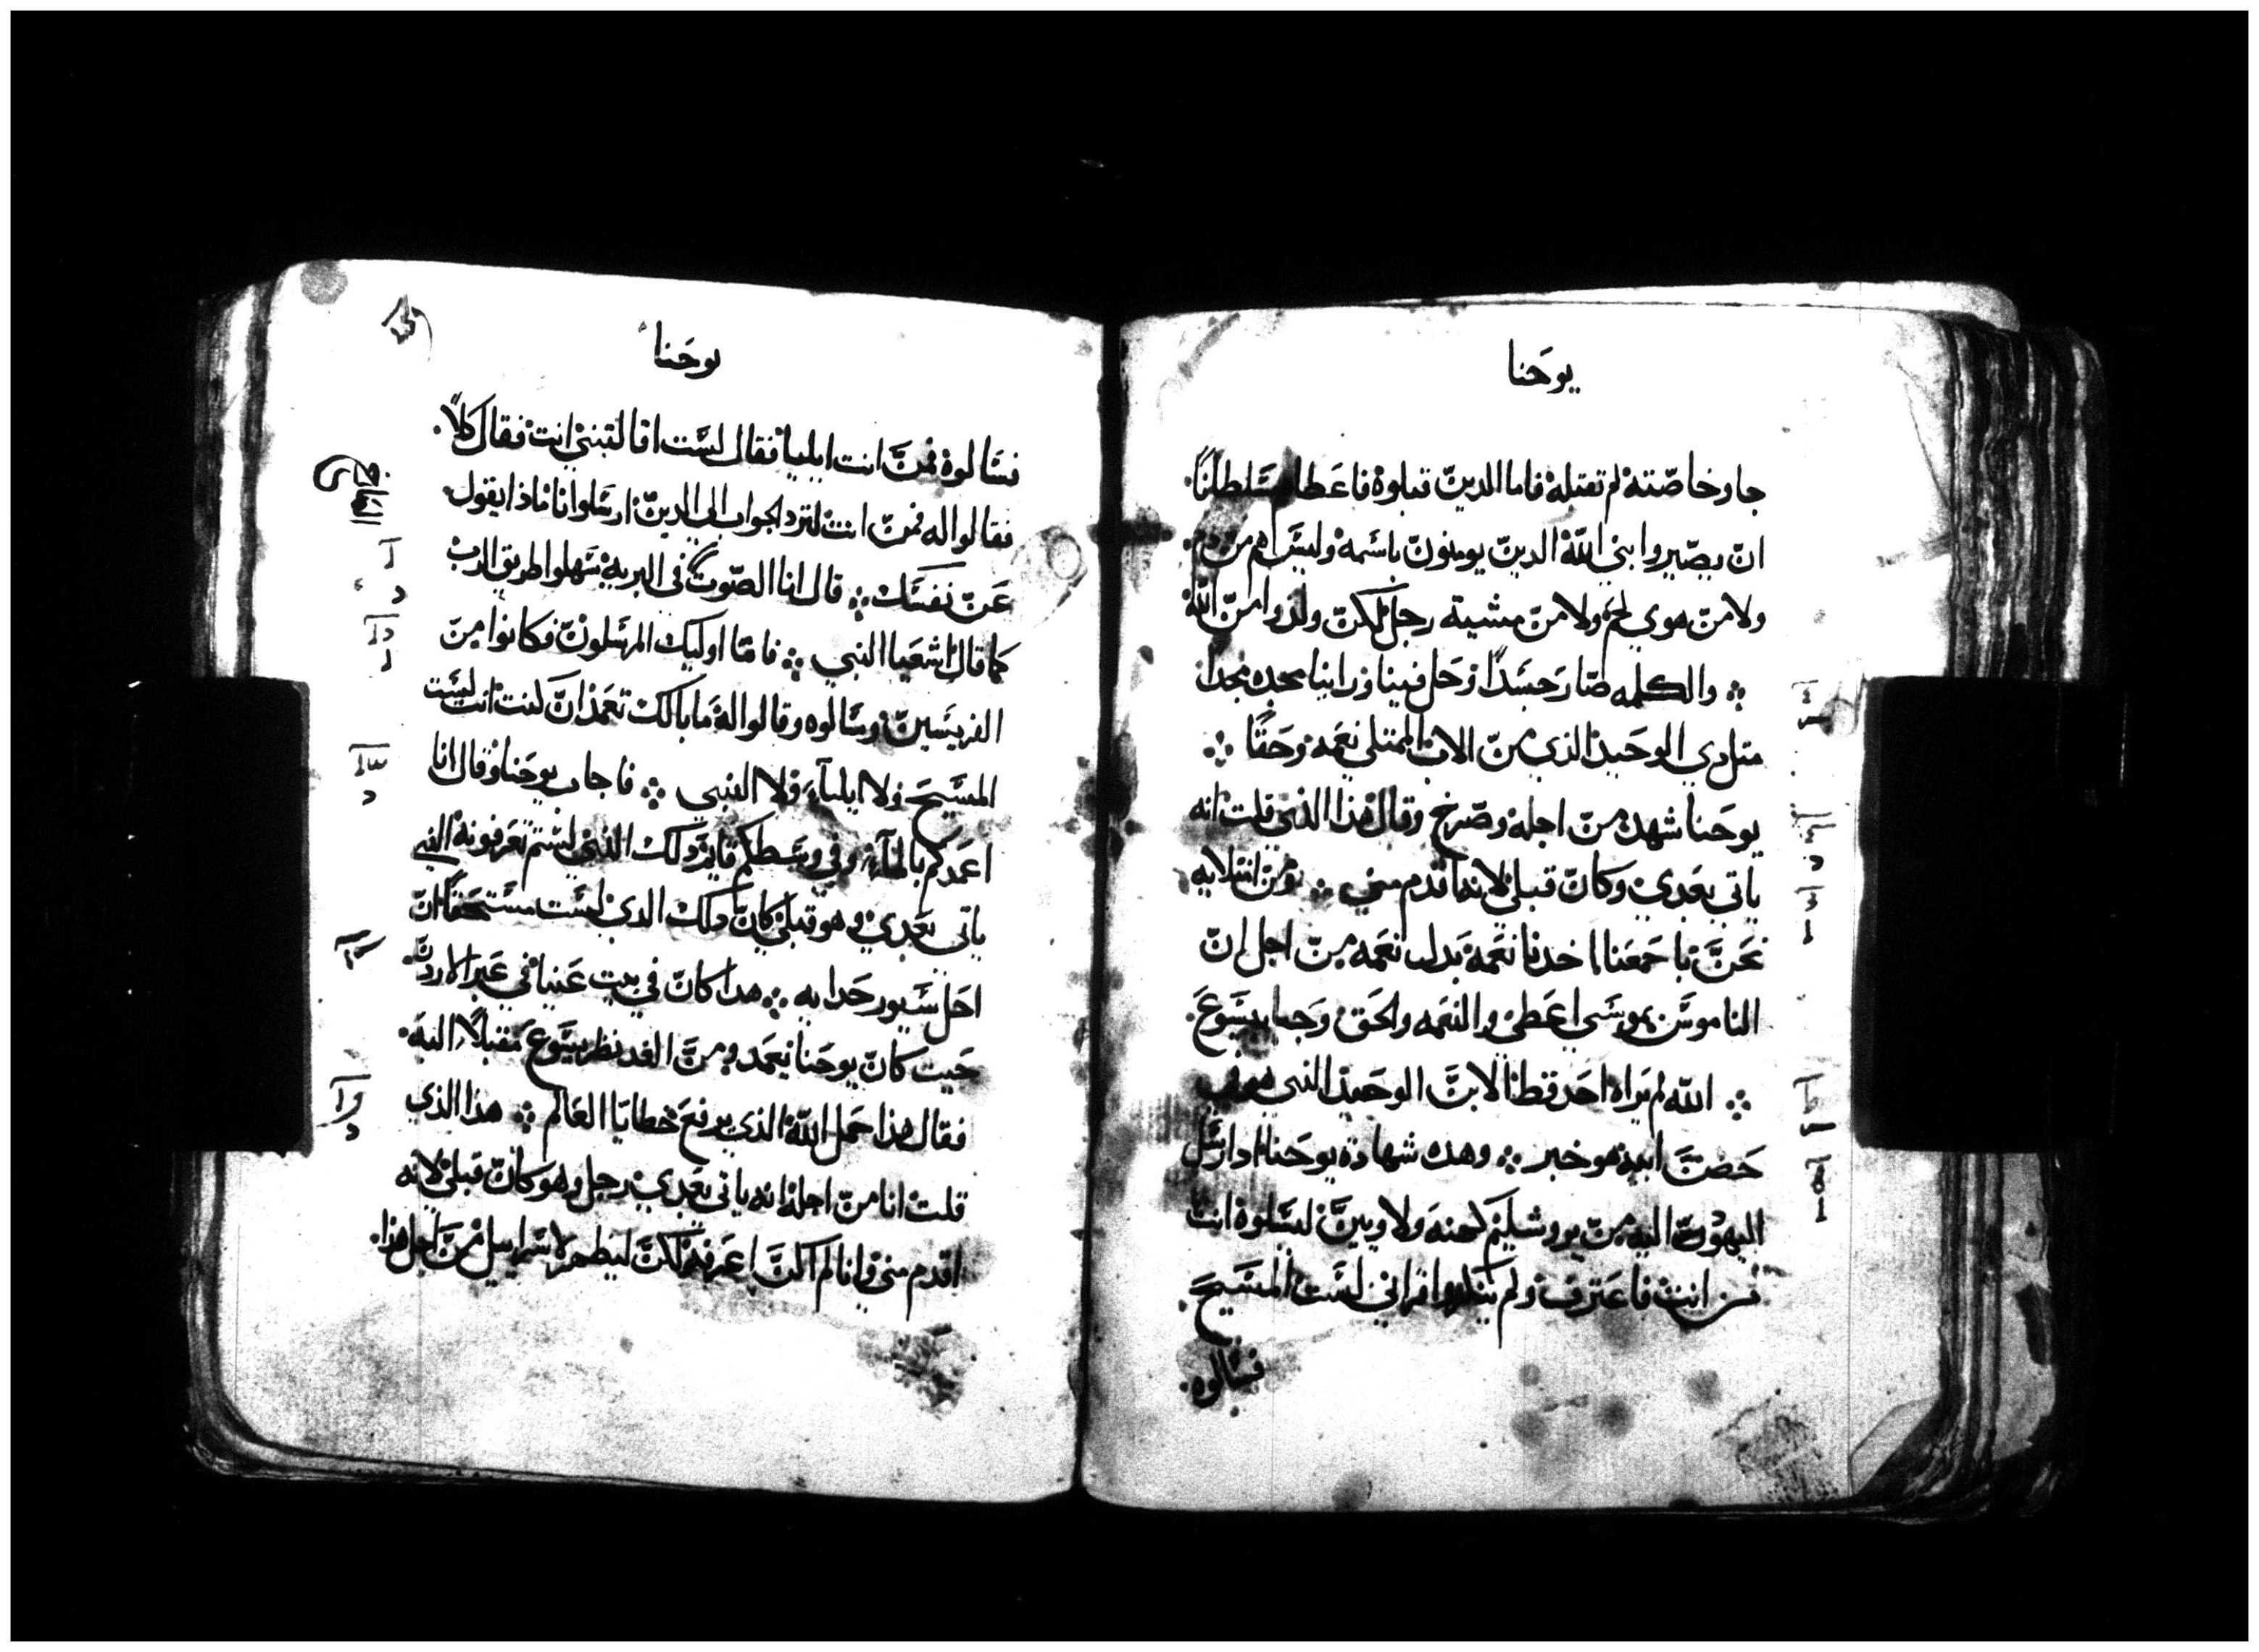 يوحنا
جا وخاصته لم تقتله فاما الدين قبلوه فاعطاهم سلطانًا
ان يصيروا بني الله الدين يومنون باسمه وليس هم من دم
ولا من هوي لحم ولا من مشية رجل لكن ولدوا من الله
والكلمه صار جسدًا وحل فينا وراينا مجده مجدا
متل دي الوحيد الذي من الاب الممتلي نعمه وحقًا
يوحنا شهد من اجله وصرخ وقال هذا الذي قلت انه
ياتي بعدي وكان قبلي لانه اقدم مني ومن امتلايه
نحن باجمعنا اخدنا نعمة بدل نعمه من اجل ان
الناموس بموسي اعطي والنعمه والحق وجبا بيسوع
الله لم يراه احد قط الابن الوحيد الذي هو في
حضن ابيه هو خبر وهده شهادة يوحنا اد ارسل
اليهود اليه من يروشليم كهنه ولاويين ليسلوه انت
من انت فاعترف ولم ينكر واقر اني لست المسيح
فسالوه
يوحنا
فسالوه فمن انت ايليا فقال لست انا النبي انت فقال كلا
فقالوا له فمن انت لنرد الجواب الي الدين ارسلوانا ماذا يقول
عن نفسك قال انا الصوت في البريه سهلوا طريق الرب
كما قال اشعيا النبي فاما اوليك المرسلون فكانوا من
الفريسين وسالوه وقالوا له ما بالك تعمد ان كنت انت لست
المسيح ولا ايليآ ولا النبي فاجاب يوحنا وقال انا
اعمدكم بالمآء وفي وسطكم قايم دلك الذي لستم تعرفونه الذي
ياتي بعدي وهو قبلي كان دلك الدي لست مستحقًا ان
احل سيور حدايه هدا كان في بيت عنيا في عبر الاردن
حيت كان يوحنا يعمد ومن الغد نظر يسوع مقبلًا اليه
فقال هذا حمل الله الذي يرفع خطايا العالم هذا الذي
قلت انا من اجله انه ياتي بعدي رجل وهو كان قبلي لانه
اقدم مني وانا لم اكن اعرفه لكن ليظهر لاسراييل من اجل هذا